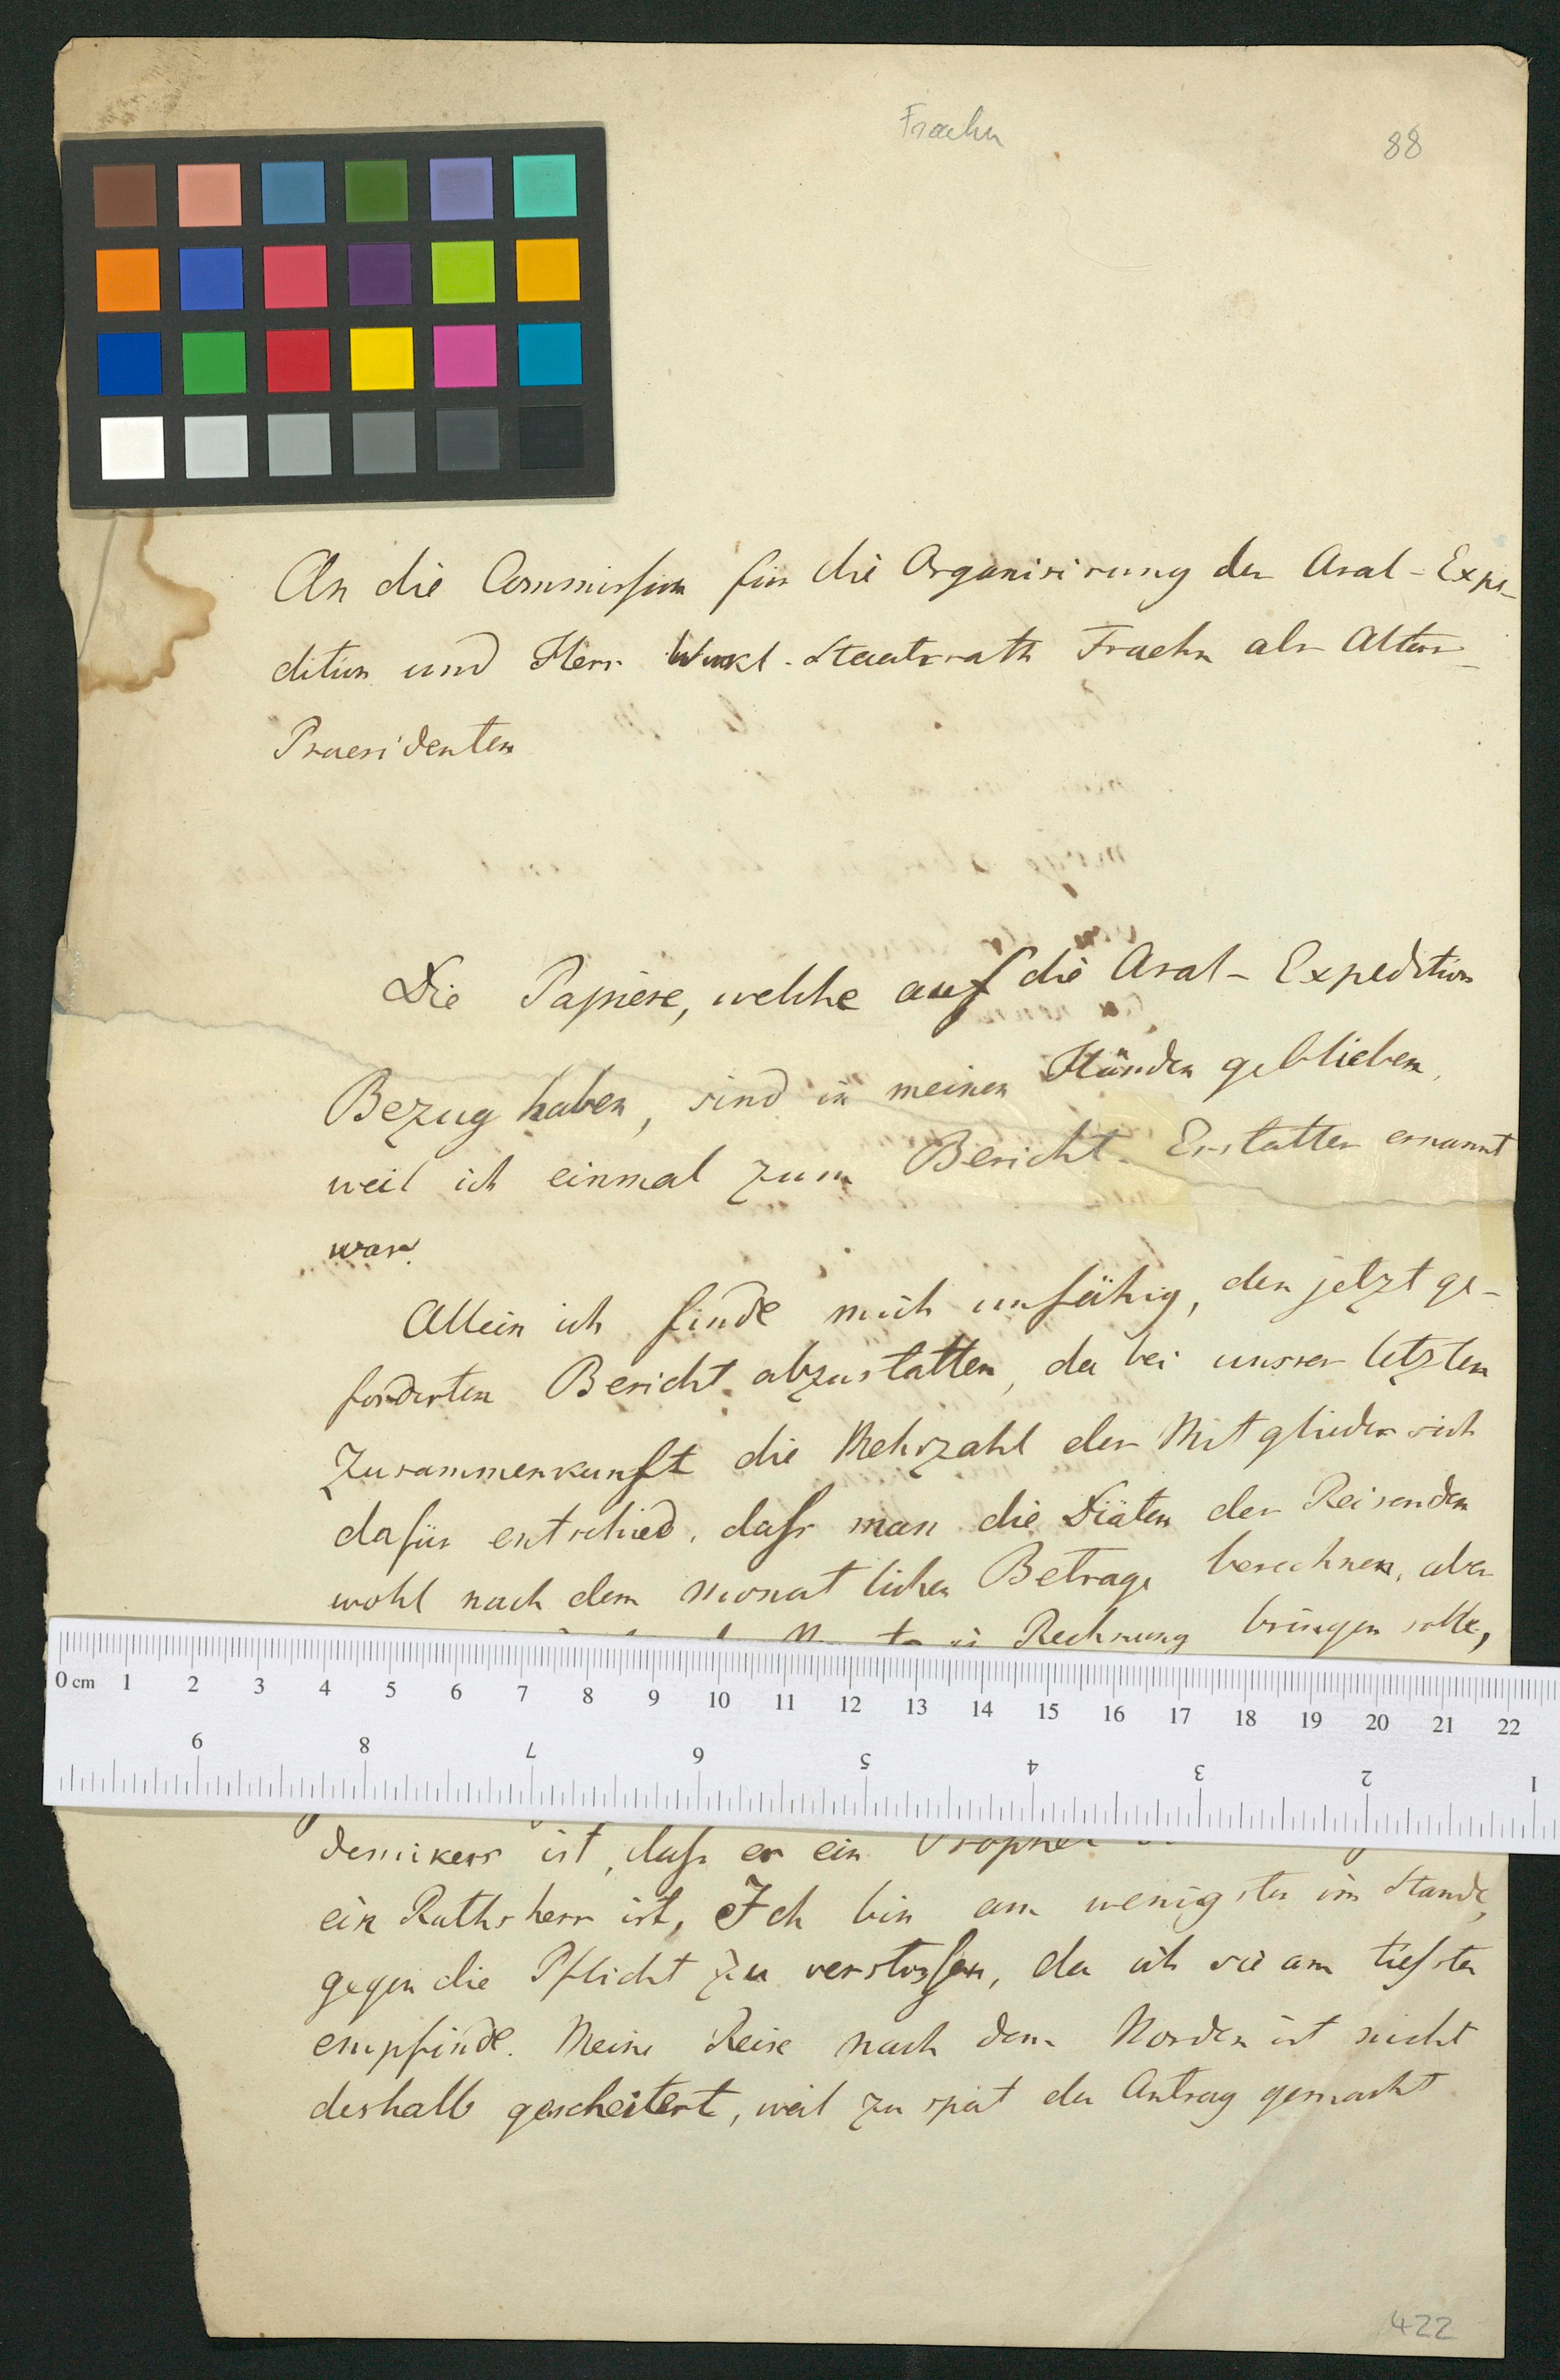 Fraehn
88
An die Commission für die Organisirung der Aral-Expe-
dition und Herr Wirkl. Staatsrath Fraehn als Alters-
Praesidenten
Die Papiere, welche auf die Aral-Expedition
Bezug haben, sind in meinen Händen geblieben,
weil ich einmal zum Bericht-Erstatter ernannt
war.
Allein ich finde mich unfähig, den jetzt ge-
forderten Bericht abzustatten, da bei unsrer letzten
Zusammenkunft die Mehrzahl der Mitglieder sich
dafür entschied, dass man die Diäten der Reisenden
wohl nach dem monatlichen Betrage berechnen, aber
Rechnung bringen solle,
0 cm 1 2 3 4 5 6 7 8 9 10 11 12 13 14 15 16 17 18 19 20 21 22
9 8 7 6 5 4 3 2 1
demikers ist, dass er ein Prophet
ein Rathsherr ist, Ich bin am wenigsten im Stande,
gegen die Pflicht zu verstossen, da ich sie am tiefsten
empfinde. Meine Reise nach dem Norden ist nicht
deshalb gescheitert, weil zu spät der Antrag gemacht
422